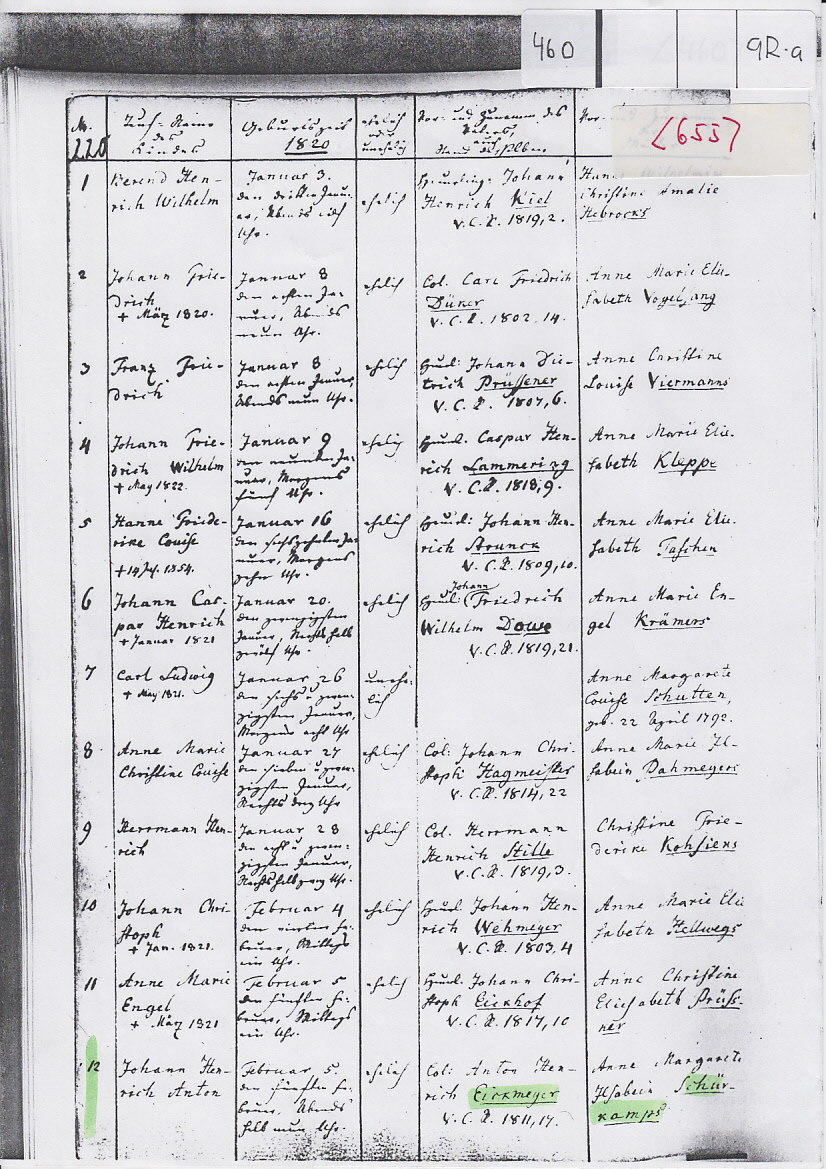 460
9R.a
(655)
No.
220
Tauf-Name
des
Kindes
Geburtszeit
1820
ehelich
oder
unehelich
Vor- und Zunamen des
Vaters,
Stand desselben
Vor-
1
Berend Hen-
rich Wilhelm
Januar 3.
den dritten Janu-
ar, Abends
Uhr.
ehelich
Heuerling: Johann
Henrich Kiel
V. C. P. 1819, 2.
Christine Amalie
Hebrocks
2
Johann Frie-
drich
+ März 1820.
Januar 8
den achten Ja-
nuar, Abends
neun Uhr.
ehelich
Col. Carl Friedrich
Düker
V. C. P. 1802. 14.
Anne Marie Elie-
sabeth Vogelsang
3
Franz Frie-
drich
Januar 8
den achten Januar,
Abends neun Uhr.
ehelich
Heuerl: Johann Die-
trich Prüssener
V. C. P. 1807, 6.
Anne Christine
Louise Viermanns
4
Johann Frie-
drich Wilhelm
+ May 1822.
Januar 9
den neunten Ja-
nuar, Morgens
fünf Uhr.
ehelich
Heuerl. Caspar Hen-
rich Lammering
V. C. P. 1818, 9.
Anne Marie Elie-
sabeth Kleppe
5
Hanne Friede-
rike Louise
+ 14 Jul. 1854.
Januar 16
den sechszehnten Ja-
nuar, Morgens
zehn Uhr.
ehelich
Heuerl: Johann Hen-
rich Strunck
V. C. P. 1809, 10.
Anne Marie Elie-
sabeth Taschen
6
Johann Cas-
par Henrich
+ Januar 1821
Januar 20.
den zwanzigsten
Januar, Nachts halb
zwölf Uhr.
ehelich
Johann
Heuerl: Friedrich
Wilhelm Dowe
V. C. P. 1819, 21.
Anne Marie En-
gel Krämers
7
Carl Ludwig
+ May 1821.
Januar 26
den sechs u zwan-
zigsten Januar,
Morgens acht Uhr
unehe-
lich
Anne Margarete
Louise Schutten,
geb. 22 April 1792.
8
Anne Marie
Christine Louise
Januar 27
den sieben u zwan-
zigsten Januar,
Nachts drey Uhr
ehelich
Col: Johann Chri-
stoph Hagmeister
V. C. P. 1814, 22
Anne Marie Il-
sabein Dahmeyers
9
Herrmann Hen-
rich
Januar 28
den acht u zwan-
zigsten Januar,
Nachts halb zwey Uhr.
ehelich
Col. Herrmann
Henrich Stille
V. C. P. 1819, 3.
Christine Frie-
derike Kohsiens
10
Johann Chri-
stoph
+ Jan. 1821.
Februar 4
den vierten Fe-
bruar, Mittags
ein Uhr.
ehelich
Heuerl. Johann Hen-
rich Wehmeyer
V. C. P. 1803, 4
Anne Marie Elie
sabeth Hellwegs
11
Anne Marie
Engel
+ März 1821
Februar 5
den fünften Fe-
bruar, Mittags
ein Uhr.
ehelich
Heuerl. Johann Chri-
stoph Eickhof
V. C. P. 1817, 10
Anne Christine
Eliesabeth Prüss-
ner
12
Johann Hen-
rich Anton
Februar 5.
den fünften Fe-
bruar, Abends
halb neun Uhr.
ehelich
Col: Anton Hen-
rich Eickmeyer
V. C. P. 1811, 17.
Anne Margarete
Ilsabein Schür-
kamps